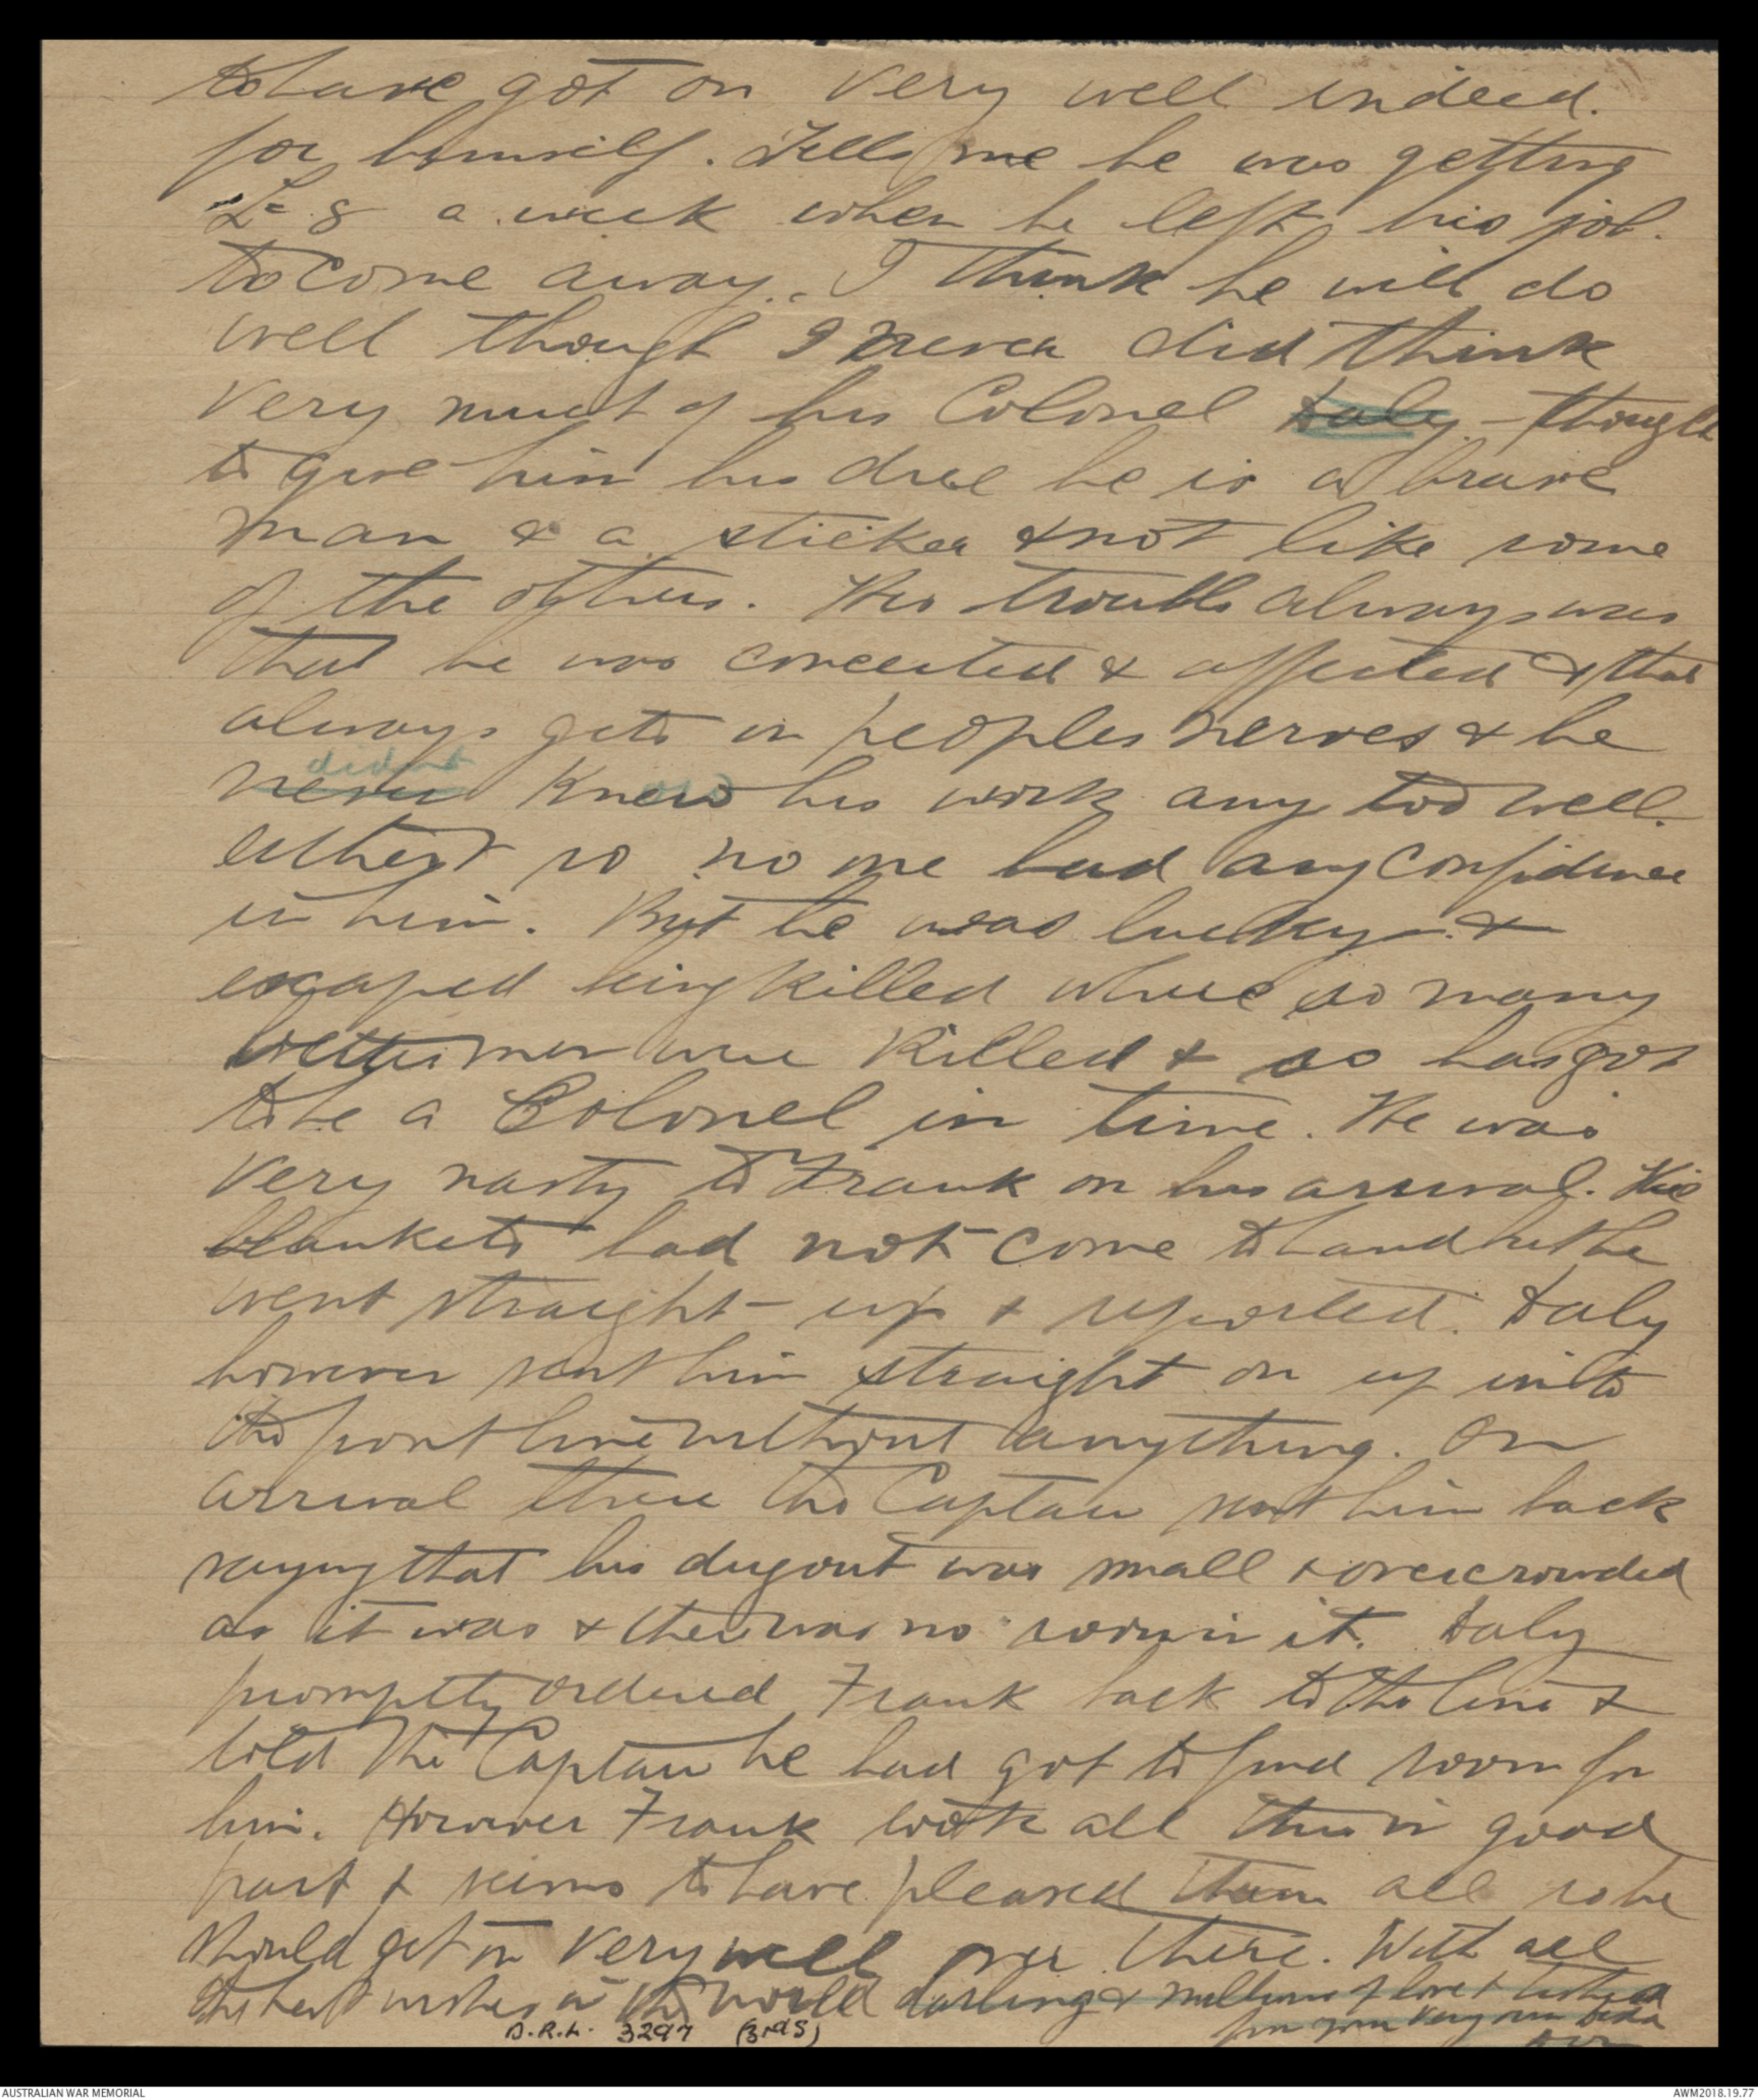 to have got on very well indeed.
for himself. Tells me he was getting
£ 8 a week when he left his job.
to come away. I think he will do
well though I never did think
very much of his Colonel Daly - though
to give him his due he is a brave
man & a sticker & not like some
of the others. His trouble always was
that he was conceited & affected & that
always gets on peoples nerves & he
didnt
never knew his work any too well.
either & so no one had any confidence
in him. But he was lucky &
escaped being killed where so many
better men were killed & so has got
to be a Colonel in time. He was
very nasty to Frank on his arrival. His
blankets had not come to hand but he
went straight up & reported. Daly
however sent him straight on up into
the front line without anything. On
arrival there the Captain sent him back
saying that his dugout was small & overcrowded
as it was & there was no room in it. Daly
promptly ordered Frank back to the line &
told the Captain he had got to find room for
him. However Frank took all this in good
part & seems to have pleased them all so he
should get on very well over there. With all
the best wishes in the world darling & millions of love & kisses
from your very own
D.R.L. 3297 (3rdS)
AUSTRALIAN WAR MEMORIAL
AWM2018.19.77